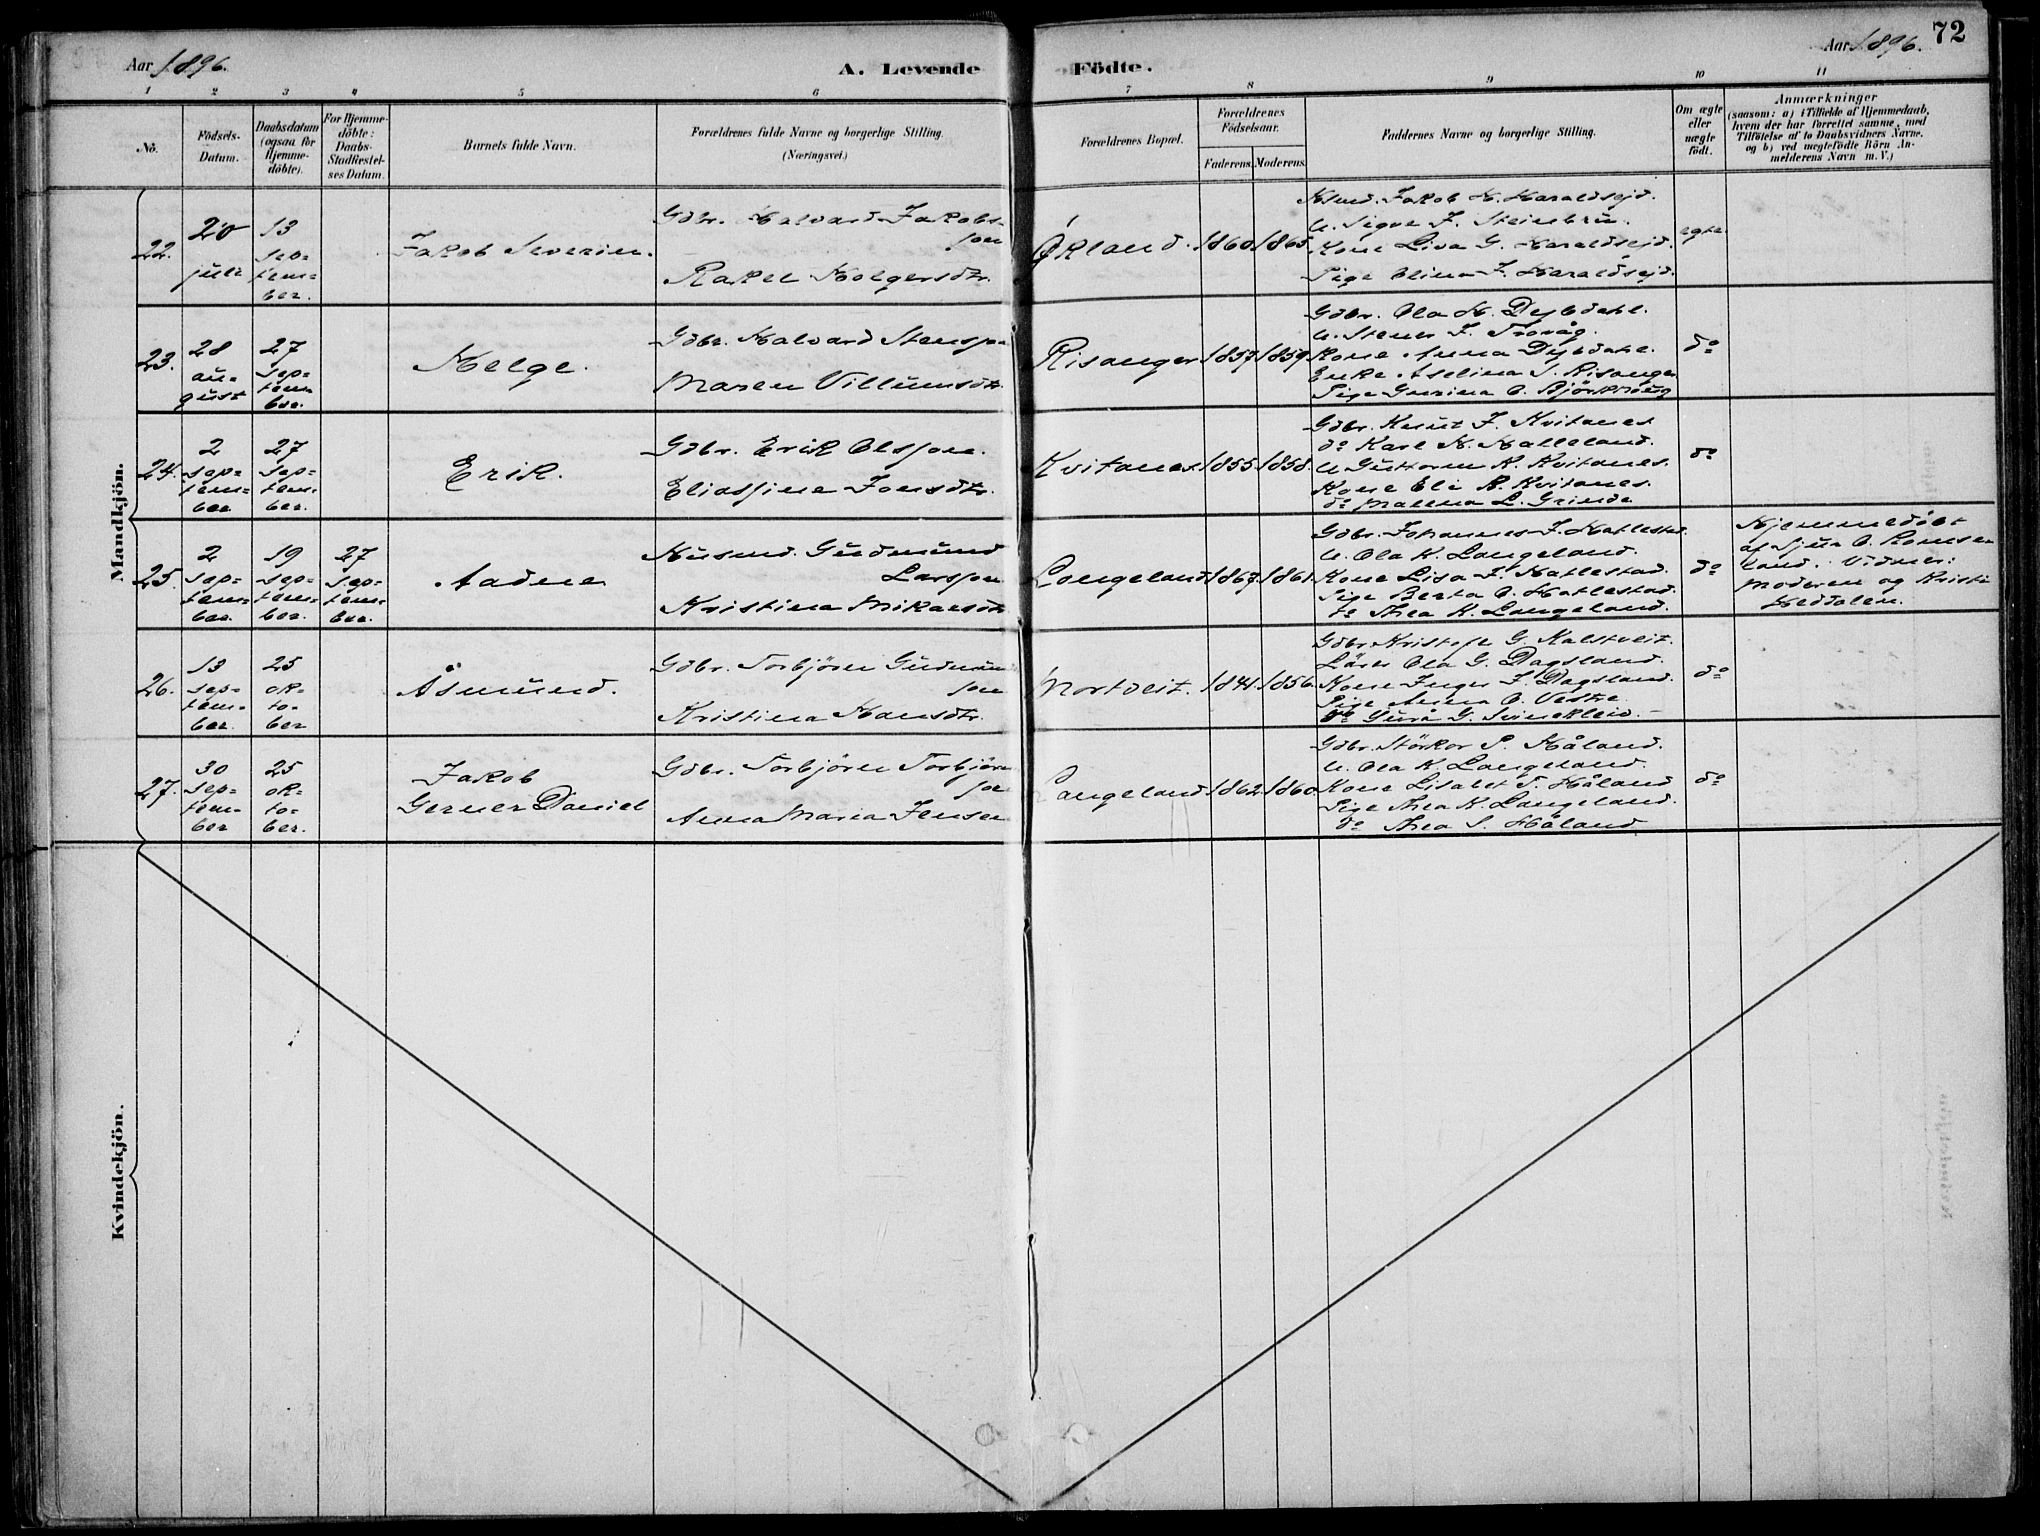 72
Aar 1896.
A. Levende
Födte.
Aar 1896.
1 2 3 4 5 6 7 8 9 10 11
No.
Födsels-
Datum.
Daabsdatum
(ogsaa for
Hjemme-
döbte).
For Hjemme-
döbte:
Daabs-
Stadfæstel-
ses Datum.
Barnets fulde Navn.
Forældrenes fulde Navne og borgerlige Stilling.
(Næringsvei.)
Forældrenes Bopæl.
Forældrenes
Födselsaar.
Faderens.
Moderens.
Faddernes Navne og borgerlige Stilling.
Om ægte
eller
uægte
födt.
Anmærkninger
(saasom: a) i Tilfælde af Hjemmedaab,
hvem der har forrettet samme, med
Tilföielse af to Daabsvidners Navne,
og b) ved uægtefödte Börn An-
melderens Navn m. V.)
Mandkjön.
22.
20
juli
13
sep-
tem-
ber.
Jakob Severin.
Gdbr. Halvard Jakobs-
son
Rakel Holgersdtr.
Økland.
1860
1865
Husmd. Jakob H. Haraldsejd.
U. Sigve J. Steinbru.
Kone Lisa G. Haraldsejd.
Pige Elina J. Haraldsejd.
egte
23.
28
au-
gust
27
sep-
tem-
ber.
Helge.
Gdbr. Halvard Stensson
Maren Villumsdtr.
Risanger
1857
1859
Gdbr. Ola H. Dybdahl.
U. Stener J. Trovåg.
Kone Anna Dybdahl.
Enke Aselina S. Risanger
Pige Gurina O. Björkhaug
do
24.
2
sep-
tem-
ber
27
sep-
tem-
ber.
Erik.
Gdbr. Erik Olsson.
Eliassine Jonsdtr.
Kvitanes
1855
1858.
Gdbr. Knut J. Kvitanes
do Karl H. Halleland.
U. Guttorm K. Kvitanes.
Kone Eli K. Kvitanes.
do Malena L. Grinde
do
25.
2
sep-
tem-
ber.
19
sep-
tem-
ber.
27
sep-
tem-
ber.
Aadne
Husmd. Gudmund
Larsson
Kristina Mikaelsdtr
Langeland
1867
1861
Gdbr. Johannes J. Hatlestad.
U. Ola K. Langeland.
Kone Lisa J. Hatlestad.
Pige Berta O. Hatlestad.
do Thea K. Langeland.
do
Hjemmedöbt
af Sjur O. Romse-
land. Vidner:
Moderen og Kristi
Heddalen.
26.
13
sep-
tem-
ber.
25
ok-
to-
ber
Åsmund.
Gdbr. Torbjörn Gudmun
son
Kristina Hansdtr.
Mortveit.
1841
1856
Gdbr. Kristofer G. Kalstveit.
Lärer Ola G. Dagsland.
Kone Inger J. Dagsland.
Pige Anna O. Vestre
do Guro G. Svinekleiv.
do
27.
30
sep-
tem-
ber
25
ok-
to-
ber.
Jakob
Gerner Daniel
Gdbr. Torbjörn Torbjörn
son
Anna Maria Jensen
Langeland
1862
1860
Gdbr. Störkor P. Håland.
U. Ola K. Langeland.
Kone Lisabet T. Håland
Pige Thea K. Langeland.
do Thea S. Håland
do
Kvindekjön.